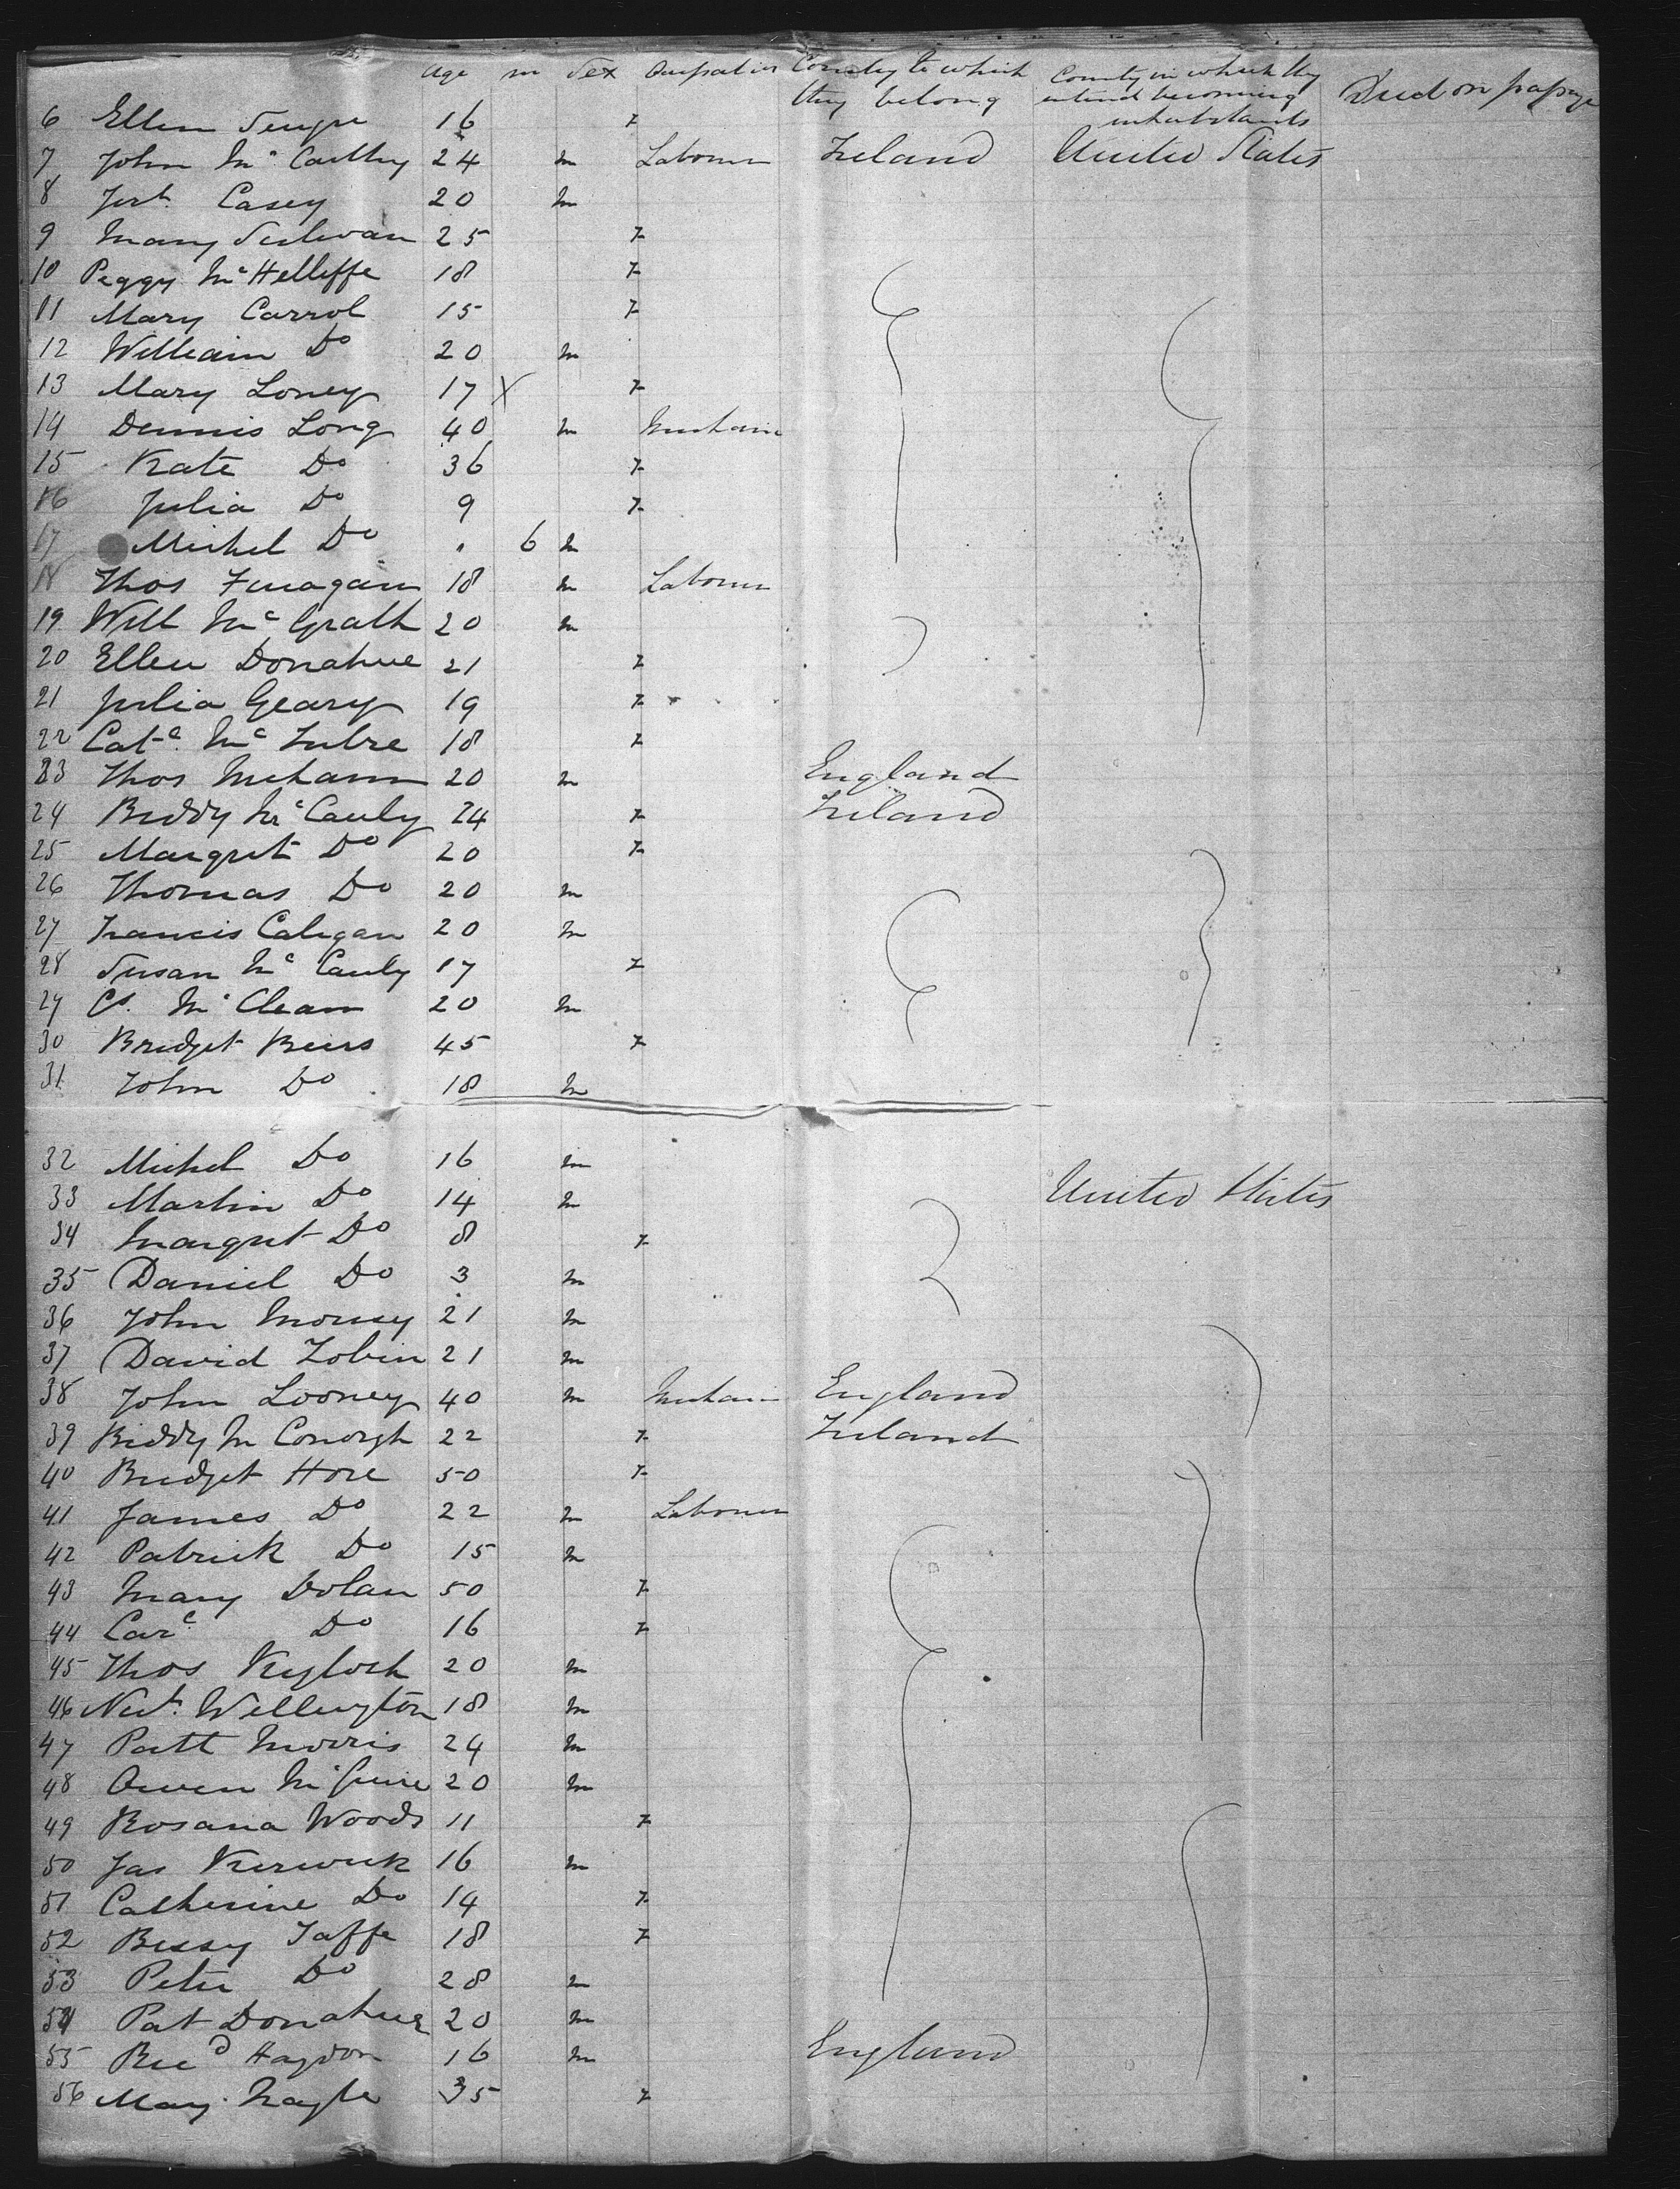 Age m Sex Occupation Country to which they belong Country in which they intend becoming inhabitants Died on passage
6 Ellen 16 F
7 John Mc Carthy 24 m Laborer Ireland United States
8 Jer.h Casey 20 m
9 Mary Sulivan 25 F
10 Peggy Mc Helliffe 18 F
11 Mary Carrol 15 F
12 William Do 20 m
13 Mary Loney 17 X F
14 Dennis Long 40 m Mechanic
15 Kate Do 36 F
16 Julia Do 9 F
17 Michel Do " 6 m
18 Thos Finagain 18 m Laborer
19 Will Mc Grath 20 m
20 Ellen Donahue 21 F
21 Julia Geary 19 F
22 Cat.e Mc 18 F
23 Thos Mehann 20 m England
24 Biddy Mc Cauly 24 F Ireland
25 Margret Do 20 F
26 Thomas Do 20 m
27 Francis Caligan 20 m
28 Susan Mc Cauly 17 F
29 Mc Clean 20 m
30 Bridget 45 F
31 John Do 18 m
32 Michel Do 16 m
33 Martin Do 14 m United States
34 Margret Do 8 F
35 Daniel Do 3 m
36 John 21 m
37 David Tobin 21 m
38 John Looney 40 m Mechanic England
39 Biddy Mc Conorgh 22 F Ireland
40 Bridget Hore 50 F
41 James Do 22 m Laborer
42 Patrick Do 15 m
43 Mary Dolan 50 F
44 Car.e Do 16 F
45 Thos 20 m
46 Wellington 18 m
47 Patt Morris 24 m
48 Owen Mc Guire 20 m
49 Rosana Woods 11 F
50 Jas Kerwick 16 m
51 Catherine Do 14 F
52 Bessy Taffe 18 F
53 Peter Do 28 m
54 Pat Donahue 20 m
55 Ric.d Haydon 16 m England
56 Mary Nagle 35 F